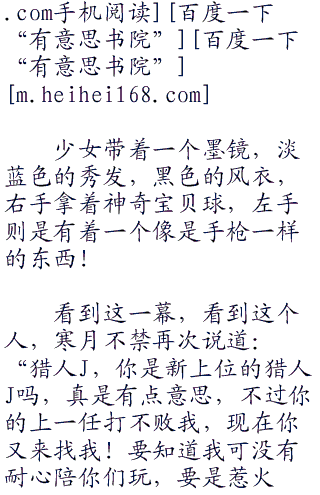 .com手机阅读][百度一下
“有意思书院”][百度一下
“有意思书院”]
[m.heihei168.com]
少女带着一个墨镜，淡
蓝色的秀发，黑色的风衣，
右手拿着神奇宝贝球，左手
则是有着一个像是手枪一样
的东西！
看到这一幕，看到这个
人，寒月不禁再次说道：
“猎人J，你是新上位的猎人
J吗，真是有点意思，不过你
的上一任打不败我，现在你
又来找我！要知道我可没有
耐心陪你们玩，要是惹火